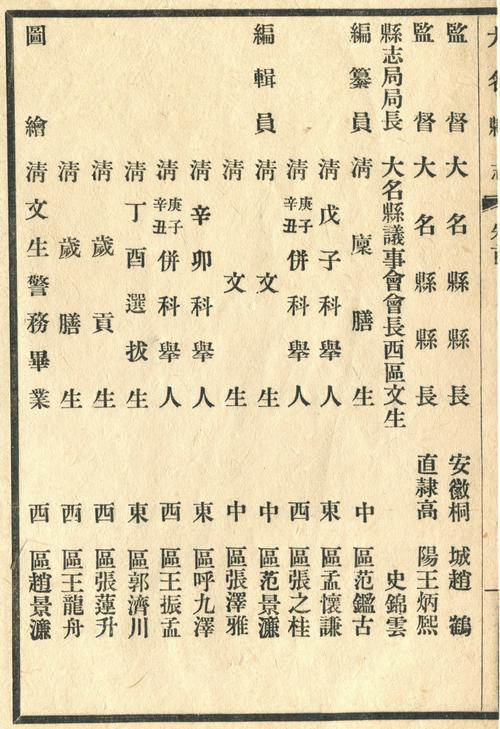 大名縣志
監督 大名縣縣長 安徽桐城趙鶴
監督 大名縣縣長 直隷高陽王炳熙
縣志局局長 大名縣議事會會長西區文生 史錦雲
編纂員 清廩膳生 中區范鑑古
清戊子科舉人 東區孟懷謙
清庚子辛丑併科舉人 西區張之桂
編輯員 清文生 中區范景濂
清文生 中區張澤雅
清辛卯科舉人 東區呼九澤
清庚子辛丑併科舉人 西區王振孟
清丁酉選拔生 東區郭濟川
清歲貢生 西區張蓮升
清歲膳生 西區王龍舟
圖繪 清文生警務畢業 西區趙景濂